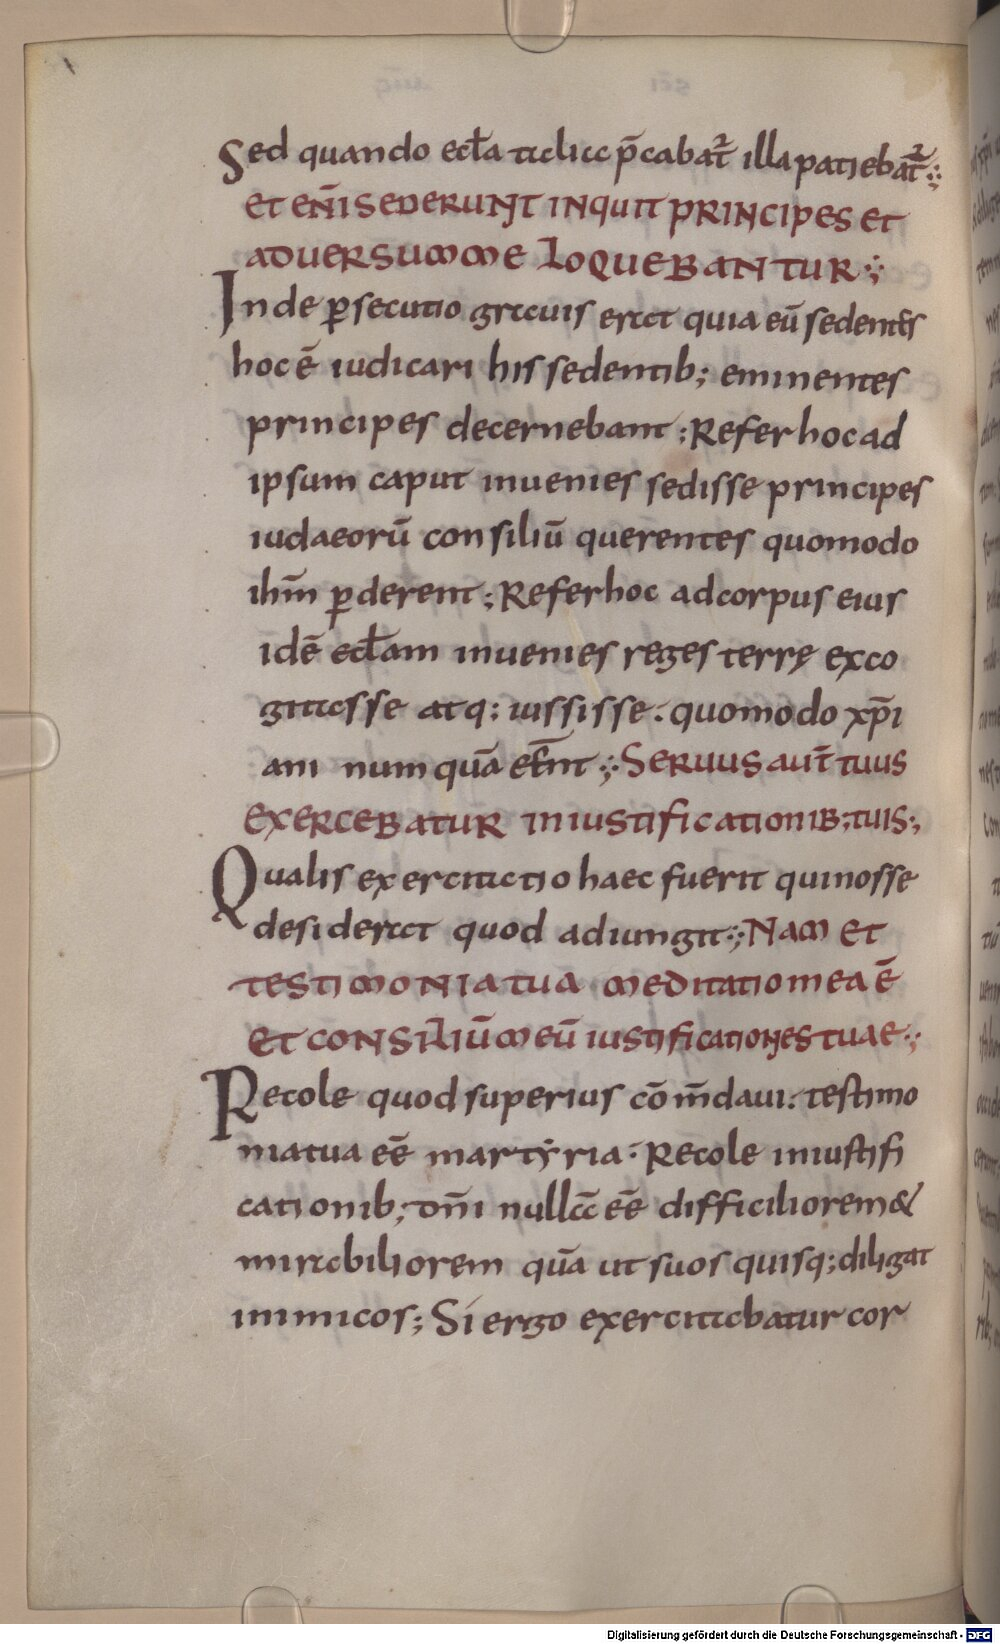 Sed quando eccła talia p̄cabat̄ illa patiebat̄
et eni̅ sederunt inquit principes et
adversum me loquebantur
Inde ꝑsecutio gravis erat quia eū sedentes
hoc ē iudicari his sedentib; eminentes
principes decernebant; Refer hoc ad
ipsum caput invenies sedisse principes
iudaeorū consiliū querentes quomodo
ih̄m ꝑderent; Refer hoc ad corpus eius
idē eccłam invenies reges terrę exco
gitasse atq; iussisse. quomodo xp̄i
ani numquā eēnt Servus aut̄ tuus
exercebatur in iustificationib; tuis;
Qualis exercitatio haec fuerit qui nosse
desiderat quod adiungit; Nam et
testimonia tua meditatio mea ē
et consiliū meū iustificationes tuae
Recole quod superius cōm̄davi. testimo
nia tua eē martyria. Recole in iustifi
cationib; dn̄i nulla eē difficiliorem &
mirabiliorem quā ut suos quisq; diligat
inimicos; Si ergo exercitabatur cor
Digitalisierung gefördert durch die Deutsche Forschungsgemeinschaft - DFG